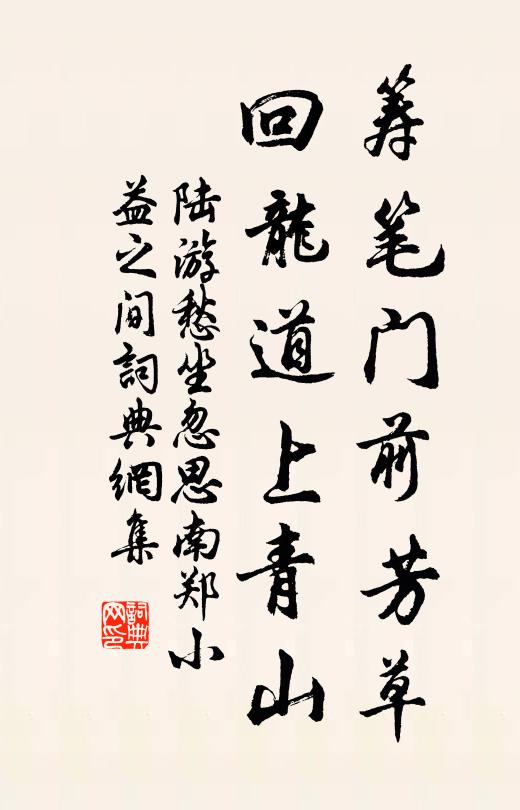 筹笔门前芳草
回龍道上青山
陆游愁坐忽思南郑小
益之间詞典網集
詞典网印